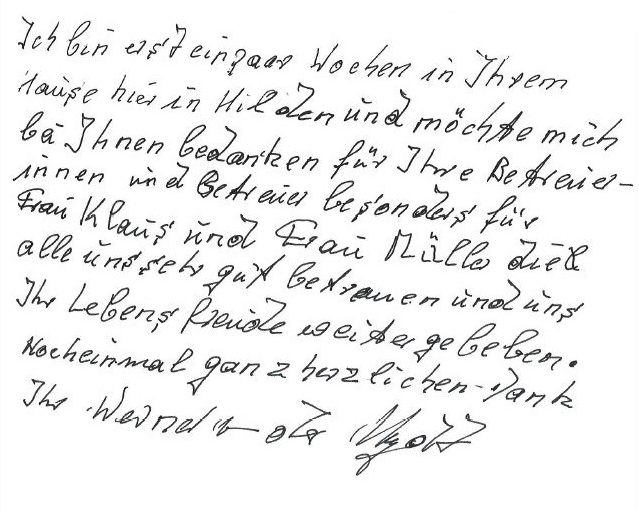 Ich bin erst ein paar Wochen in Ihrem
Hause hier in Hilden und möchte mich
bei Ihnen bedanken für Ihre Betreuer-
innen und Betreuer besonders für
Frau Klaus und Frau Müller die
alle uns sehr gut betrauen und uns
Ihr Lebensfreude weitergeben.
Nocheinmal ganz herzlichen Dank
Ihr Werner